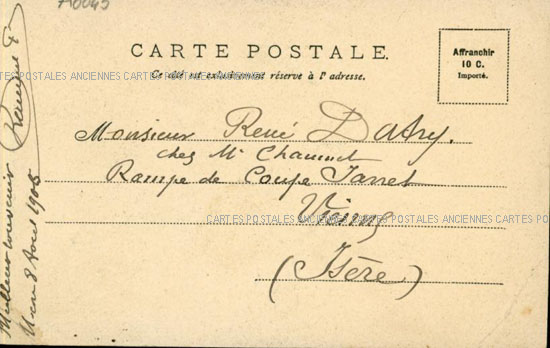 A0045
CARTE POSTALE.
Ce côté est exclusivement réservé à l'adresse.
Affranchir
10 C.
Importé.
CARTES POSTALES ANCIENNES CARTES POSTALES ANCIENNES CARTES POSTALES
Monsieur René
chez Mr
Rampe de Coupe Jarret
Vienne
CARTES POSTALES ANCIENNES CARTES POSTALES ANCIENNES CARTES POS
(Isère)
Meilleur souvenir
8 Août 1905